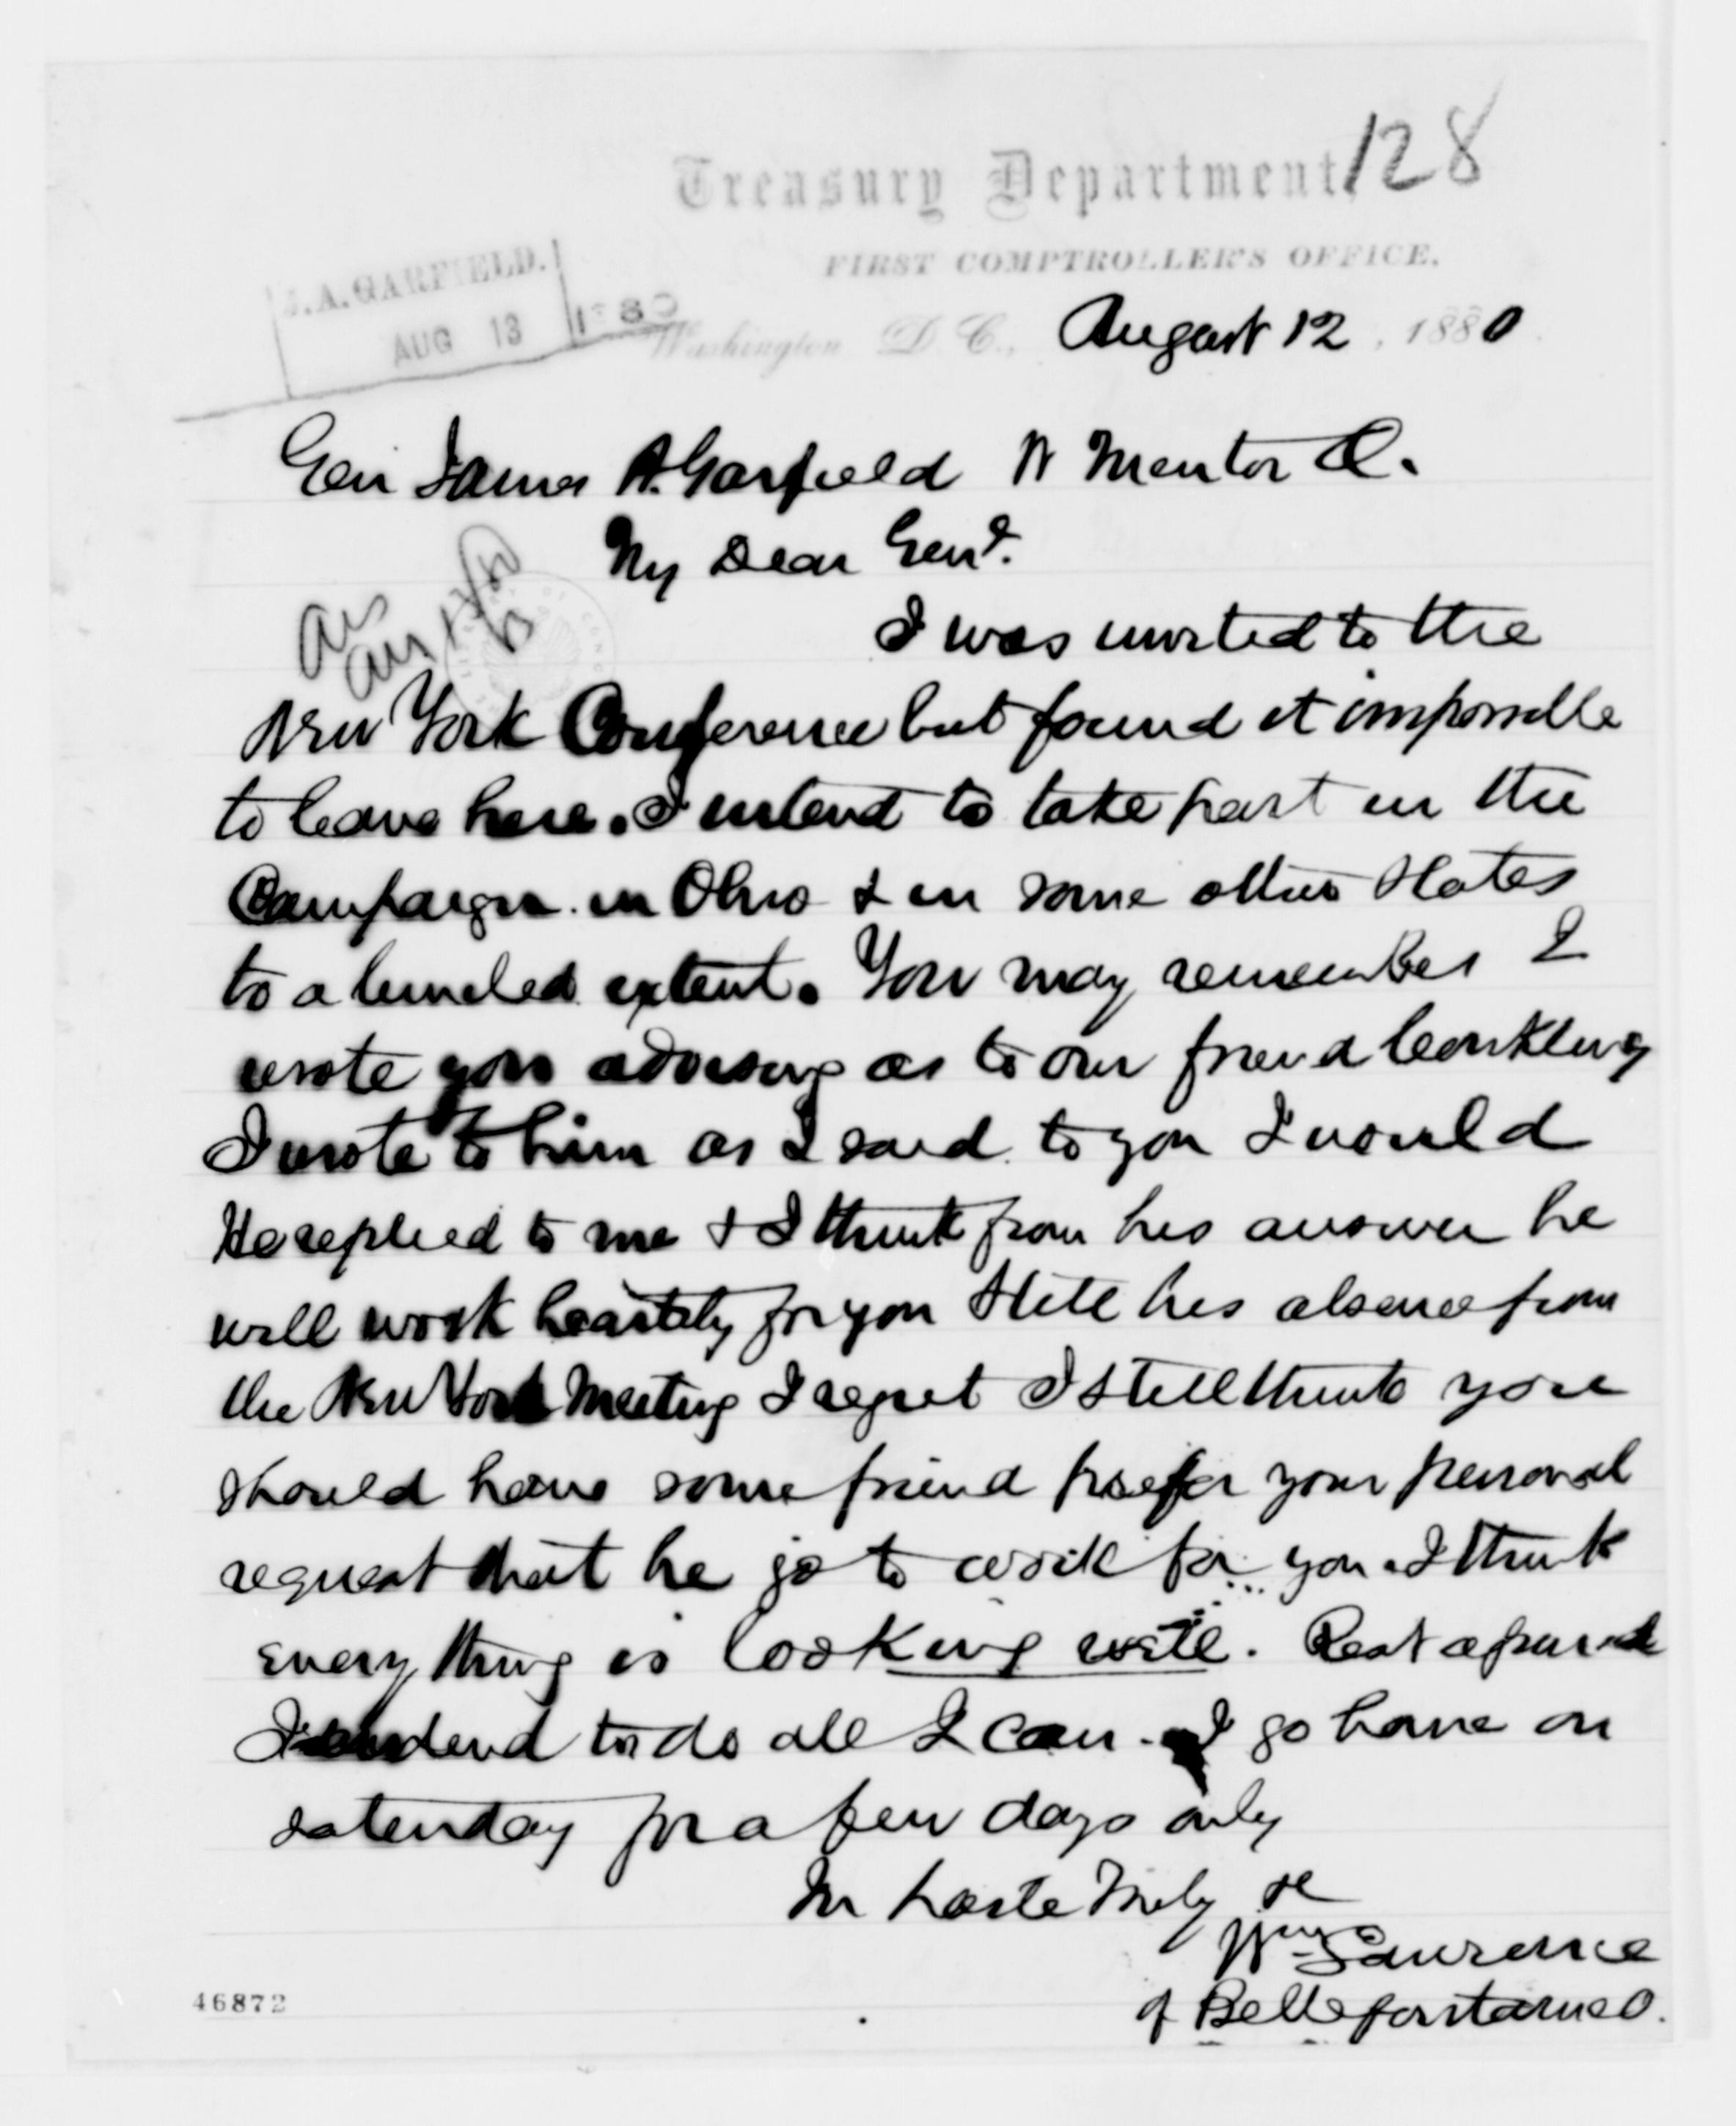 128
Treasury Department,
FIRST COMPTROLLER'S OFFICE.
J. A. GARFIELD.
AUG 13 1880
Washington D. C., August 12, 1880
Gen James A. Garfield W Mentor O.
My Dear Genl.
I was invited to the
New York Conference but found it impossible
to leave here. I intend to take part in the
Campaign in Ohio & in some other States
to a limited extent. You may remember I
wrote you advising as to our friend Conkling
I wrote to him as I said to you I would
He replied to me & I think from his answer he
will work heartily for you Still his absence from
the New York Meeting I regret I still think you
should have some friend prefer your personal
request that he go to work for you. I think
every thing is looking well. Rest assured
I intend to do all I can. I go home on
saturday for a few days only
In haste Truly &c
Wm Lawrence
of Bellefontaine O.
46872